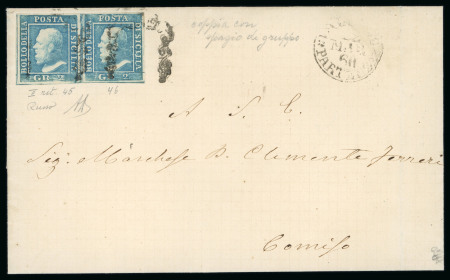 POSTA
BOLLO DELLA
DI SICILIA
GR. 2
POSTA
BOLLO DELLA
DI SICILIA
GR. 2
coppia con
spazio di gruppo
60
PART
46
A S. E.
Sig. Marchese D. Clemente Ferreri
Comiso